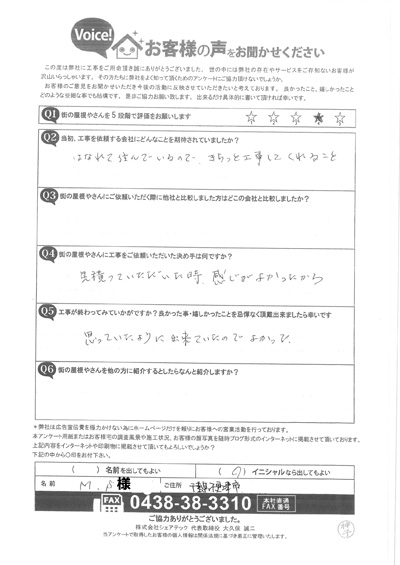 Voice!
お客様の声をお聞かせください
この度は弊社に工事をご用命頂き誠にありがとうございました。世の中には弊社の存在やサービスをご存知ないお客様が
沢山いらっしゃいます。その方たちに弊社をよく知って頂くためのアンケートにご協力頂けないでしょうか。
お客様のご意見をお聞かせいただき今後の活動に反映させていただきたいと考えております。良かったこと、嬉しかったこと
どのような些細な事でも結構です。是非ご協力お願い致します。出来るだけ具体的に書いて頂ければ幸いです。
Q1 街の屋根やさんを5段階で評価をお願いします ☆ ☆ ☆ ★ ☆
Q2 当初、工事を依頼する会社にどんなことを期待されていましたか？
はなれて住んでいるので、きちっと工事してくれること
Q3 街の屋根やさんにご依頼いただく際に他社と比較しました方はどこの会社と比較しましたか？
Q4 街の屋根やさんに工事をご依頼いただいた決め手は何ですか？
見積っていただいた時、感じがよかったから
Q5 工事が終わってみていかがですか？良かった事・嬉しかったことを忌憚なく頂戴出来ましたら幸いです
思っていたように出来ていたのでよかった。
Q6 街の屋根やさんを他の方に紹介するとしたらなんと紹介しますか？
＊弊社は広告宣伝費を極力かけない為にホームページだけを頼りにお客様への営業活動を行っております。
本アンケート用紙またはお客様宅の調査風景や施工状況、お客様の御写真を随時ブログ形式のインターネットに掲載させて頂いております。
上記内容をインターネットや印刷物に掲載させて頂いてもよろしいでしょうか？
下記の中から〇印をお付け下さい。
（　）名前を出してもよい （○）イニシャルなら出してもよい
名前 M.S 様 ご住所 木更津市
FAX 0438-38-3310 本社直通 FAX番号
ご協力ありがとうございました。
株式会社シェアテック 代表取締役 大久保 誠二
当アンケートで取得したお客様の個人情報は関係法規に基づき厳正に管理いたします。